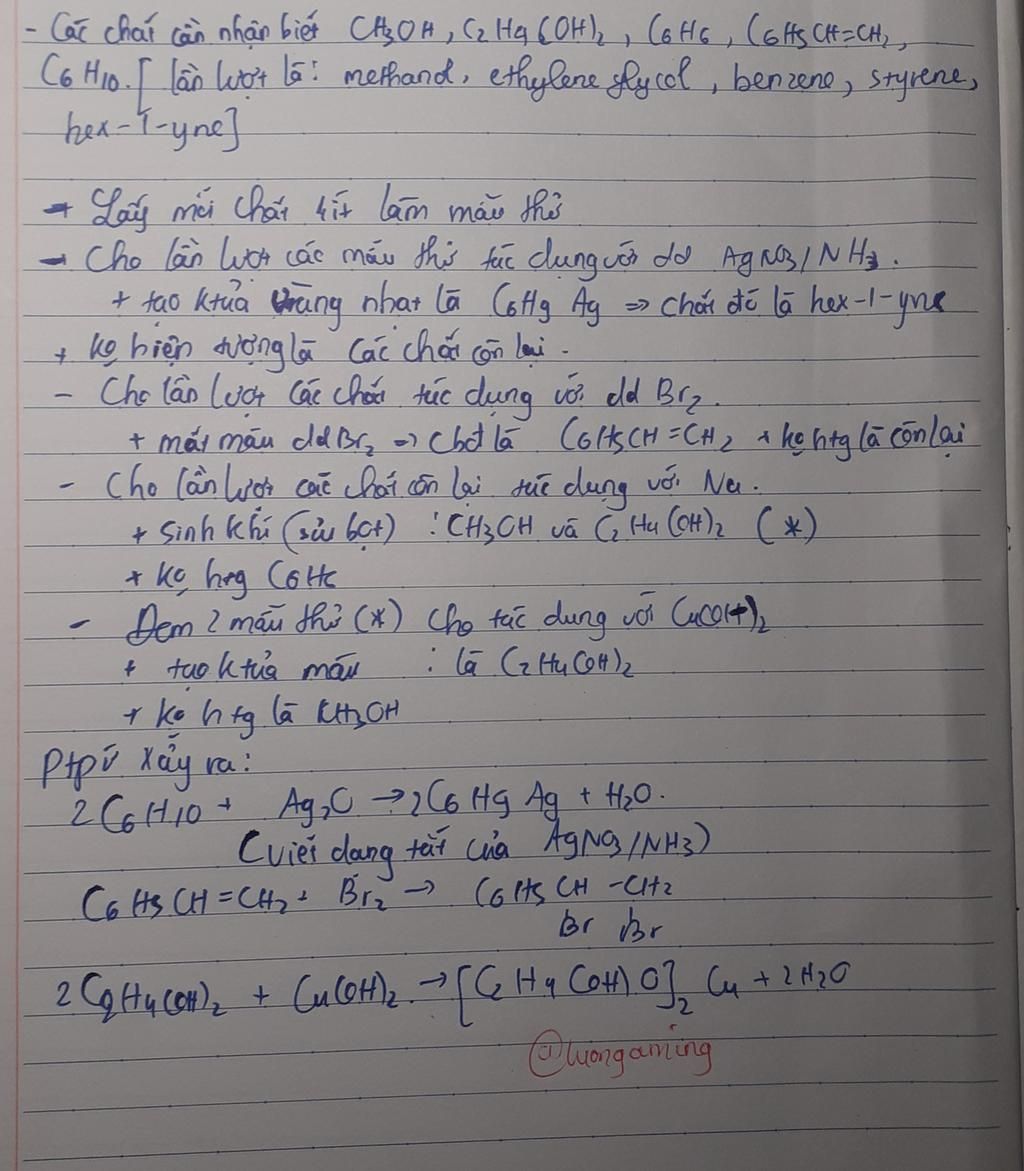 - Các chất cần nhận biết CH3OH, C2H4(OH)2, C6H6, C6H5CH=CH2,
C6H10. [ lần lượt là: methanol, ethylene glycol, benzene, styrene,
hex-1-yne]
- Lấy mỗi chất ít làm mẫu thử
- Cho lần lượt các mẫu thử tác dụng với dd AgNO3/NH3.
+ tạo ktủa vàng nhạt là C6H9Ag => chất đó là hex-1-yne
+ ko hiện tượng là các chất còn lại.
- Cho lần lượt các chất tác dụng với dd Br2.
+ mất màu ddBr2 => chđ là C6H5CH=CH2 + ko htg là còn lại
- Cho lần lượt các chất còn lại tác dụng với Na.
+ sinh khí (sủi bọt) : CH3OH và C2H4(OH)2 (*)
+ ko htg C6H6
- Đem 2 mẫu thử (*) cho tác dung với Cu(OH)2
+ tạo ktủa màu : là C2H4(OH)2
+ ko htg là CH3OH
Ptpứ xảy ra:
2C6H10 + Ag2O → 2C6H9Ag + H2O.
(viết dạng tắt của AgNO3/NH3)
C6H5CH=CH2 + Br2 → C6H5CH-CH2
Br Br
2C2H4(OH)2 + Cu(OH)2 → [C2H4(OH)O]2 Cu + 2H2O
@luongaming